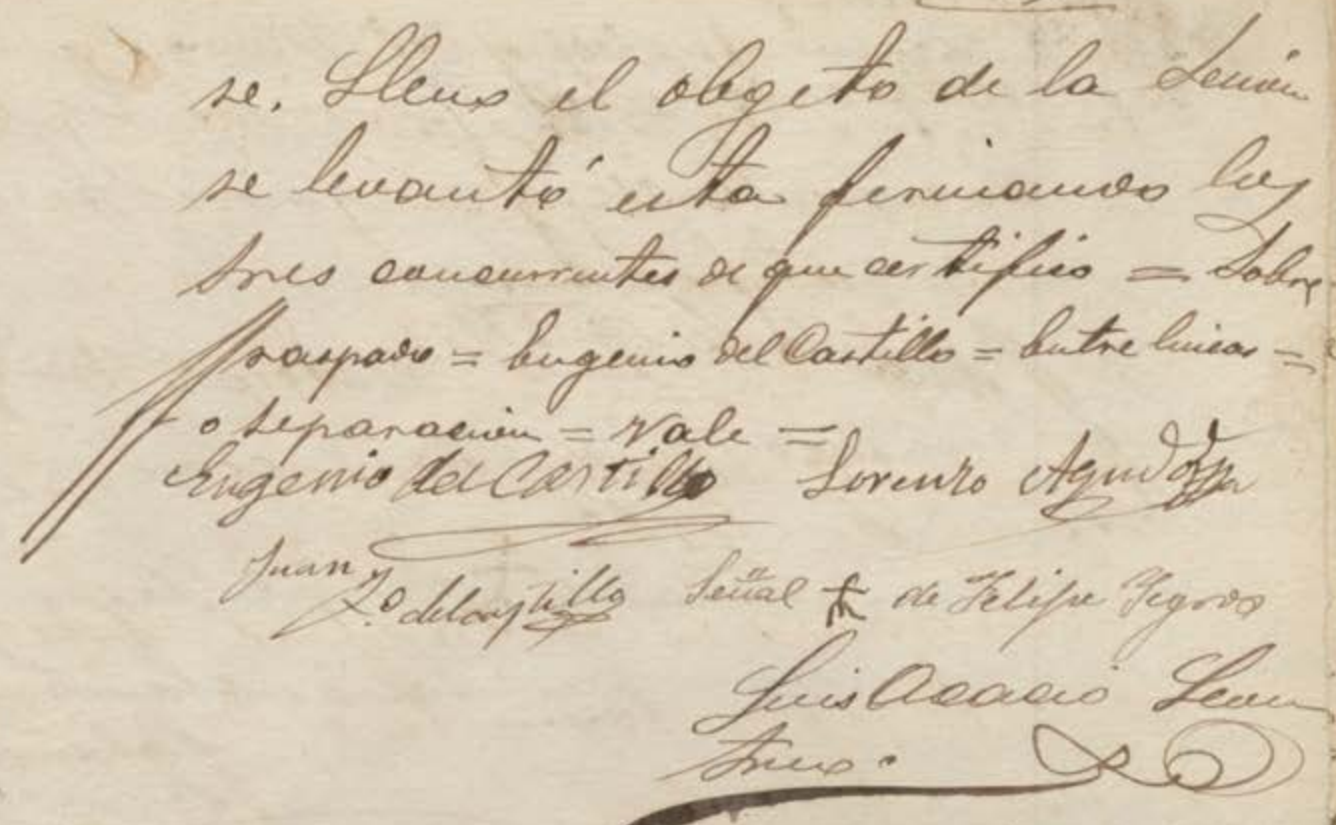 se. Lleno el obgeto de la Sesión
se levantó esta firmando los
Sres concurrentes de que certifico = Sobre
raspado = Eugenio del Castillo = Entre lineas =
o separación = Vale =
Eugenio del Castillo Lorenzo Agudo
Juan
Fo. del castillo Señal + de Felipe Yegros
Luis Acacio
Srio.